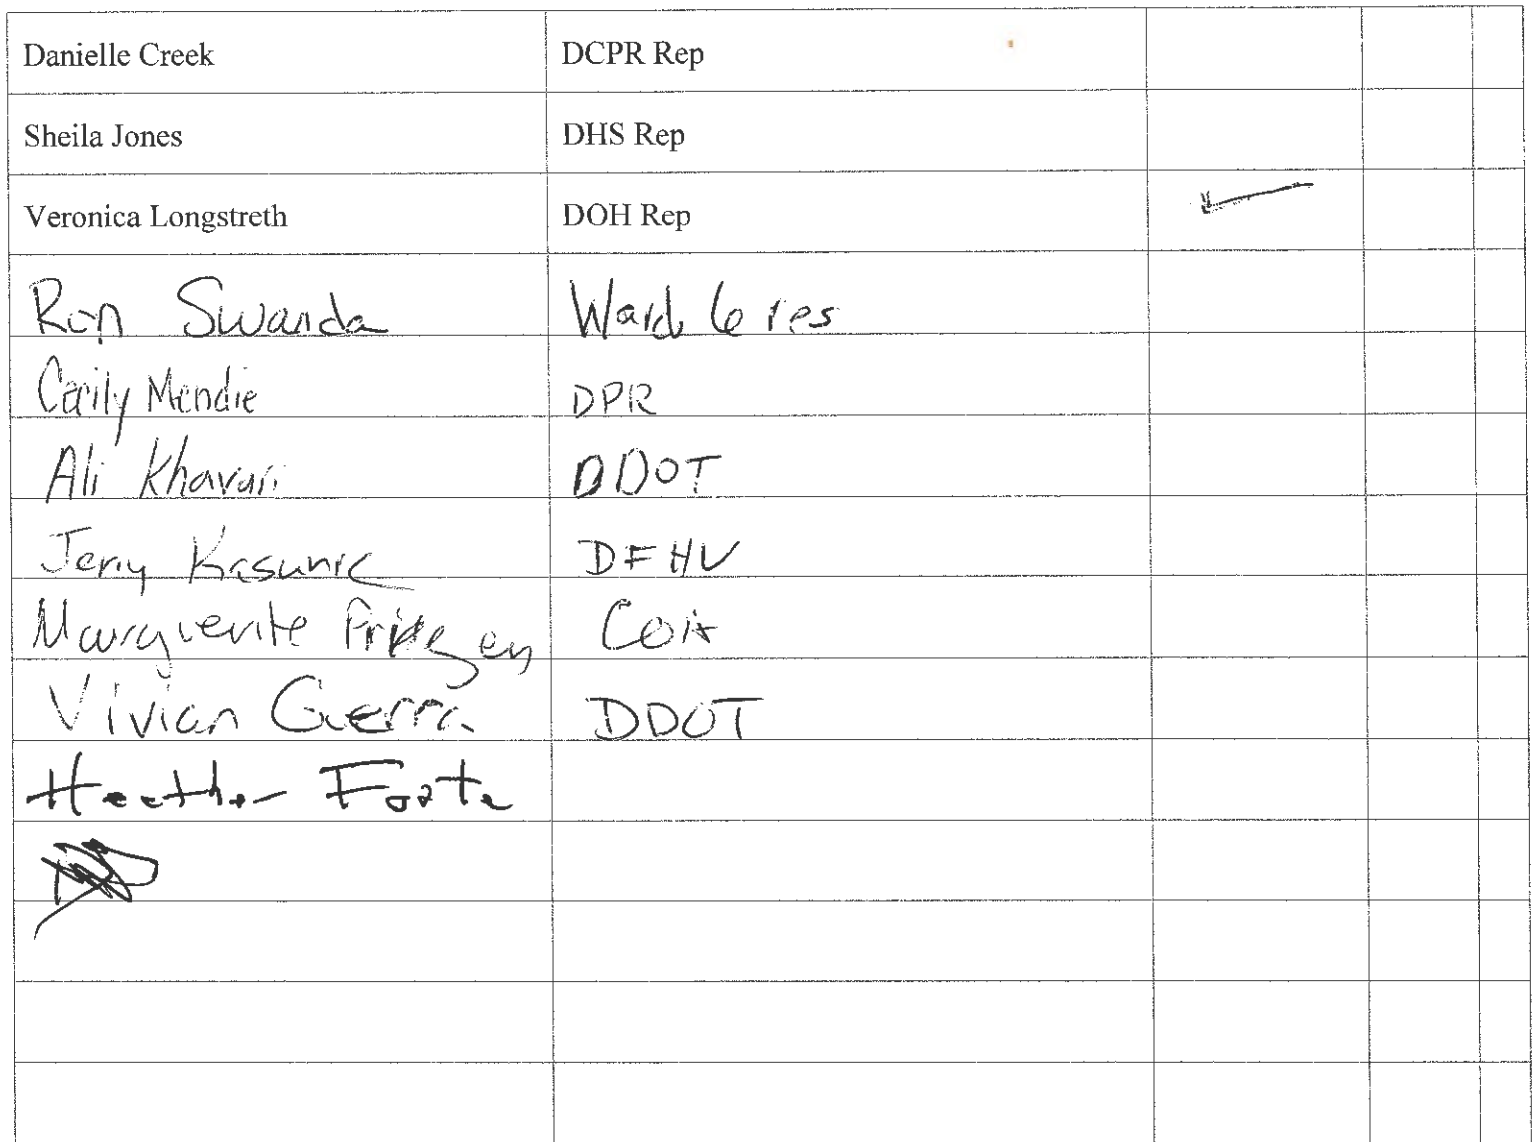 Danielle Creek DCPR Rep
Sheila Jones DHS Rep
Veronica Longstreth DOH Rep
Ron Swanda Ward 6 res
Mendie DPR
Ali Khavari DDOT
Jerry Kasunic DFHV
Marguerite Pridgen
Vivian Guerra DDOT
Heather Foote